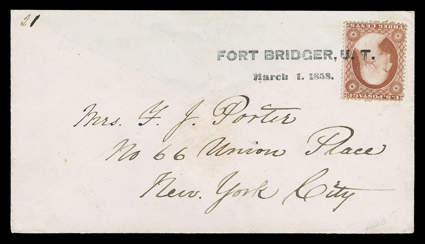 21
FORT BRIDGER, U. T.
March 1. 1858.
Mrs. F. J. Porter
No 66 Union Place
New. York City